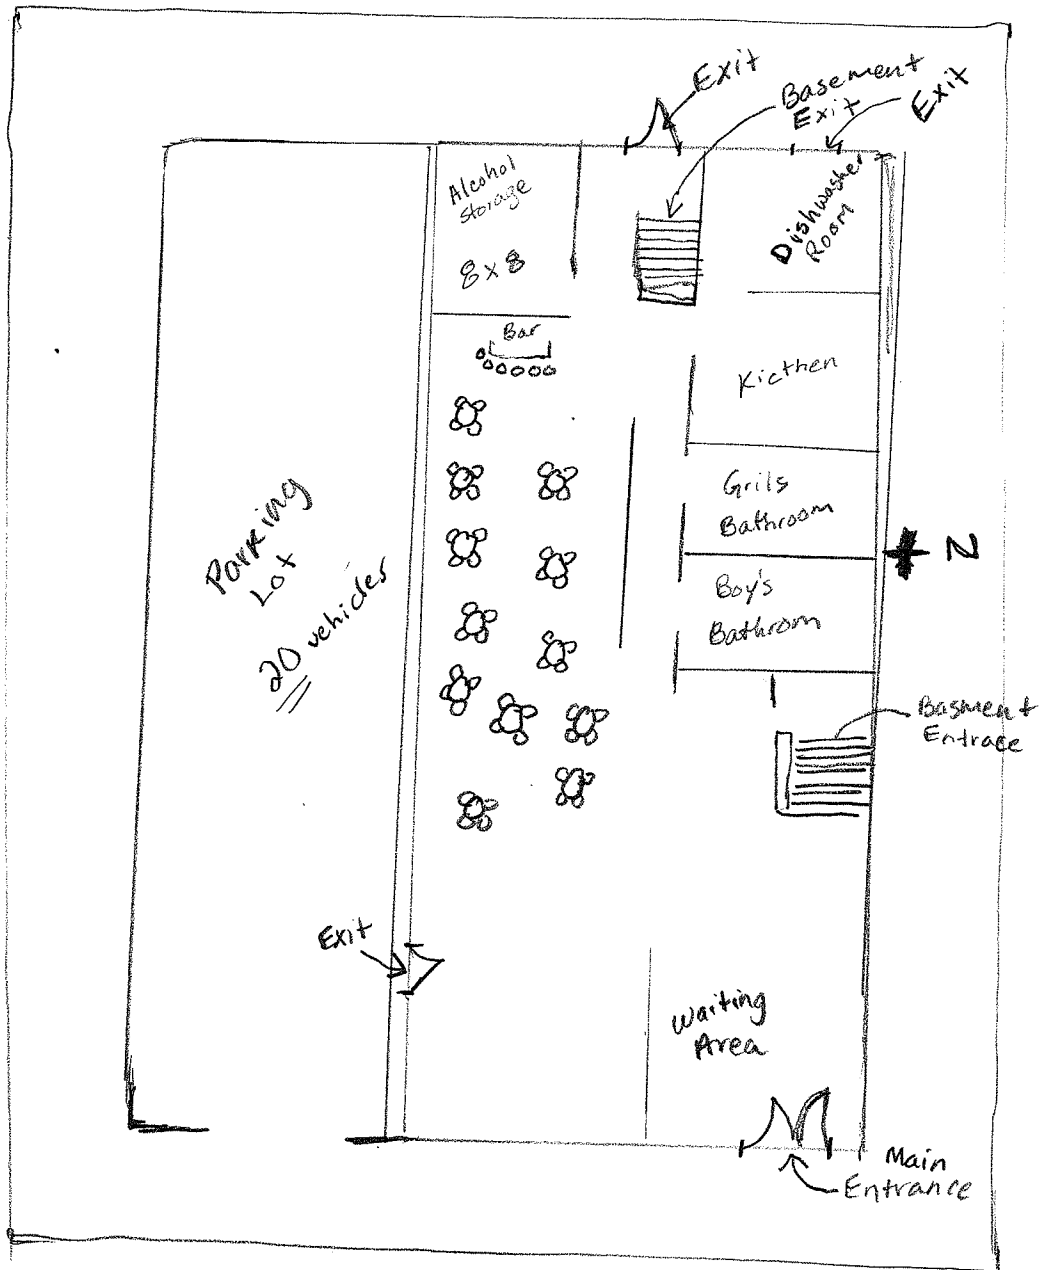 Exit
Basement
Exit
Exit
Alcohol
Storage
8x8
Dishwasher
Room
Bar
Kicthen
Grils
Bathroom
N
Boy's
Bathroom
Parking
Lot
20 vehicles
Basment
Entrace
Exit
Waiting
Area
Main
Entrance